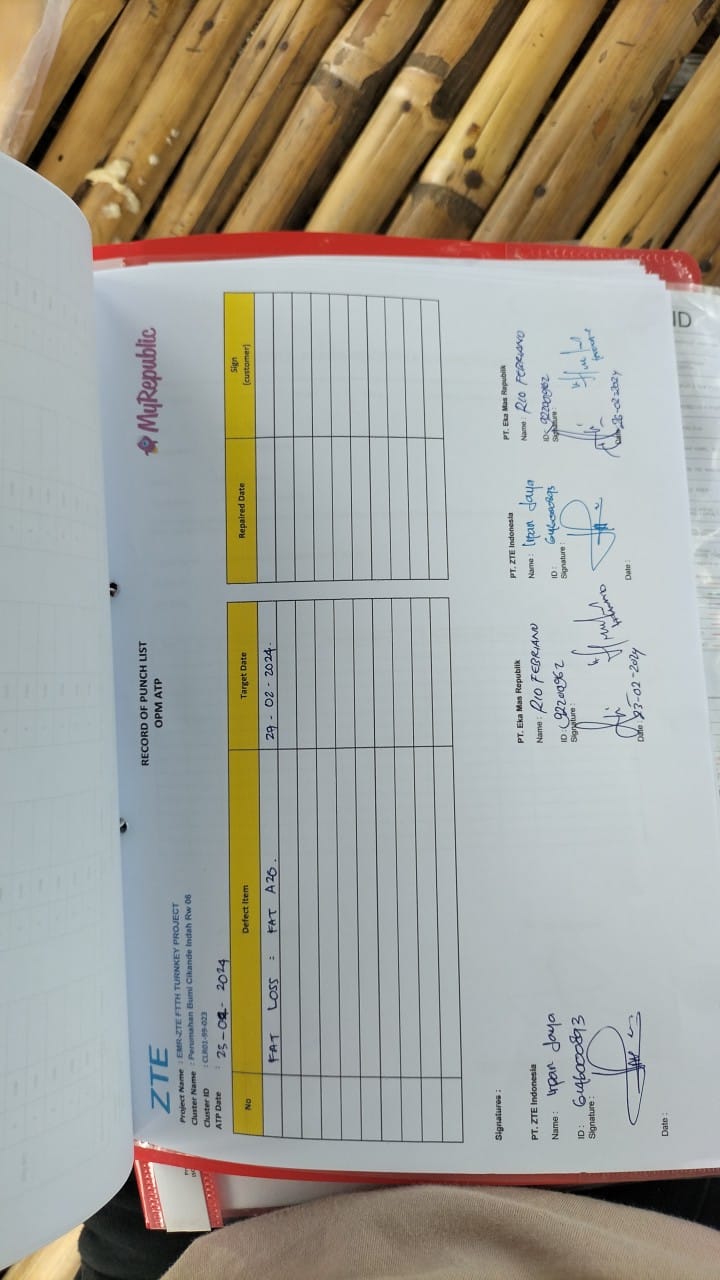 ZTE
MyRepublic
RECORD OF PUNCH LIST
OPM ATP
Project Name : EMR-ZTE FTTH TURNKEY PROJECT
Cluster Name : Perumahan Bumi Cikande Indah Rw 06
Cluster ID : CLR01-99-023
ATP Date : 23-02-2024
No Defect Item Target Date Repaired Date Sign (customer)
FAT LOSS : FAT A26. 29-02-2024.
Signatures :
PT. ZTE Indonesia
Name : Irpan Jaya
ID : 6446000893
Signature :
Date :
PT. Eka Mas Republik
Name : RIO FEBRIANO
ID : 92200962
Signature :
Date : 23-02-2024
PT. ZTE Indonesia
Name : Irpan Jaya
ID : 6446000893
Signature :
Date :
PT. Eka Mas Republik
Name : RIO FEBRIANO
ID : 92200962
Signature :
Date : 26-02-2024
ID